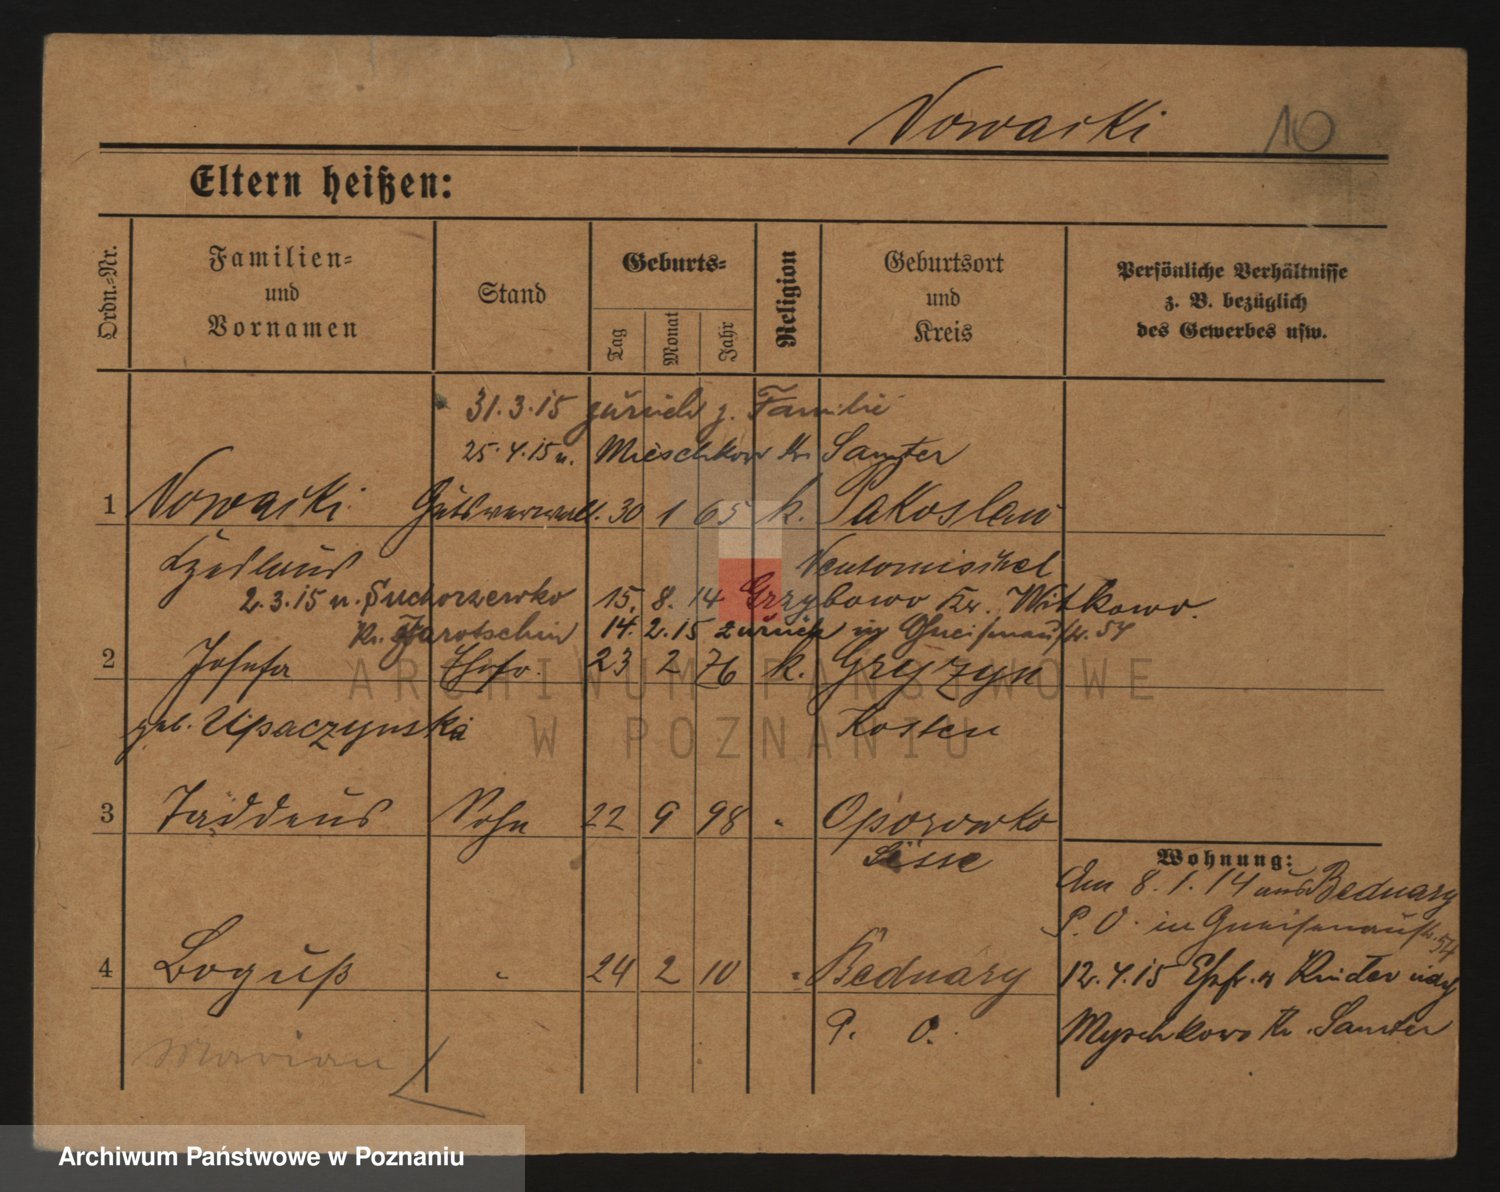 Nowacki 10
Eltern heißen:
Ordn.-Nr.
Familien-
und
Vornamen
Stand
Geburts-
Tag
Monat
Jahr
Religion
Geburtsort
und
Kreis
Persönliche Verhältnisse
z. B. bezüglich
des Gewerbes usw.
31.3.15 zurück z. Familie
25.4.15 n. Mieschkow Kr. Samter
1 Nowacki Gutsverwalt. 30 1 65 k. Pakoslaw
Neutomischel
2.3.15 n. Suchorzewko 15. 8. 14 Grzybowo Kr. Witkowo.
Kr. Jarotschin 14. 2. 15 zurück in Gneisenaustr. 54
2 Josefa Ehefr. 23 2 76 k. Gryzyn
geb. Upaczynska Kosten
3 Taddeus Sohn 22 9 98 " Oporowko
Lissa
Wohnung:
Am 8.1.14 aus Bednary
P. O. in Gneisenaustr. 54
4 Boguß " 24 2 10 " Bednary
P. O.
12.4.15 Ehfr. u Kinder nach
Myschkowo Kr. Samter
Marian
ARCHIWUM PAŃSTWOWE
W POZNANIU
Archiwum Państwowe w Poznaniu